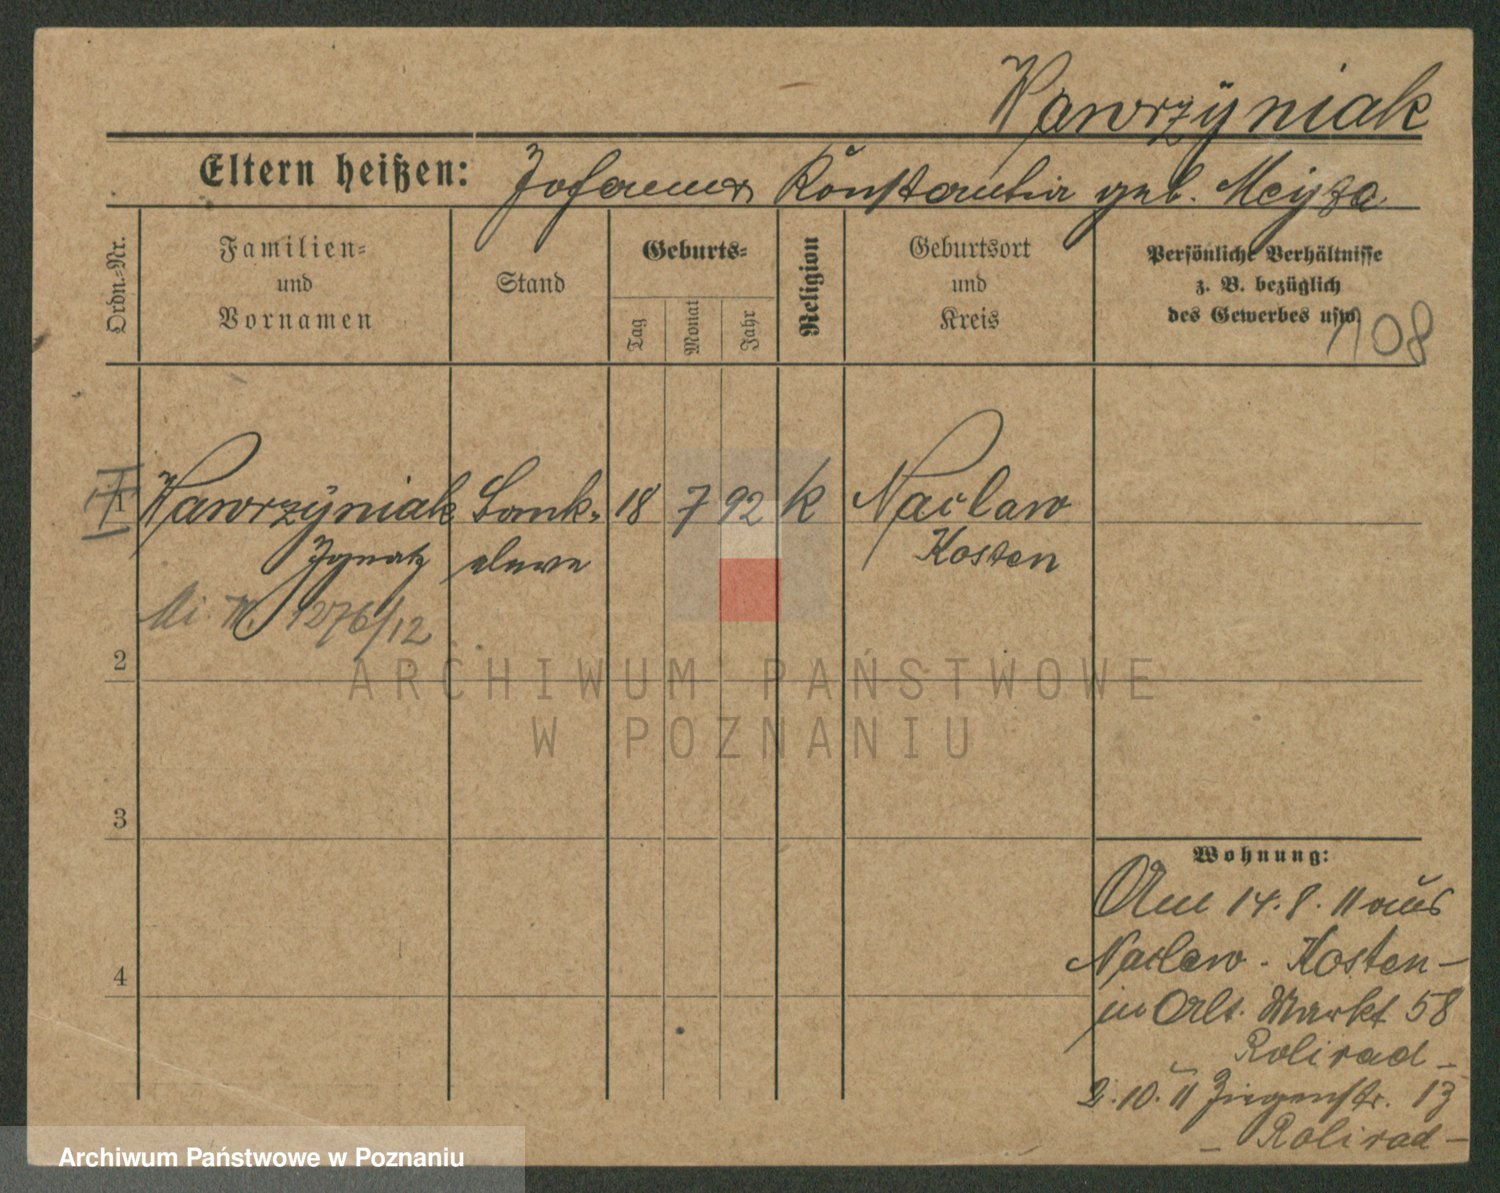 Wawrzÿniak
Eltern heißen: Johann u. Konstantia geb. Meyza
Ordn.-Nr.
Familien-
und
Vornamen
Stand
Geburts-
Tag
Monat
Jahr
Religion
Geburtsort
und
Kreis
Persönliche Verhältnisse
z. B. bezüglich
des Gewerbes usw.
108
1 Wawrzÿniak Bank- 18 7 92 k Naclaw
Ignatz eleve Kosten
1276/12
2
3
4
Wohnung:
Am 14. 8. 11 aus
Naclaw - Kosten -
in Alt. Markt 58
Rolirad -
2. 10. 11 Ziegenstr. 13
- Rolirad -
ARCHIWUM PAŃSTWOWE
W POZNANIU
Archiwum Państwowe w Poznaniu